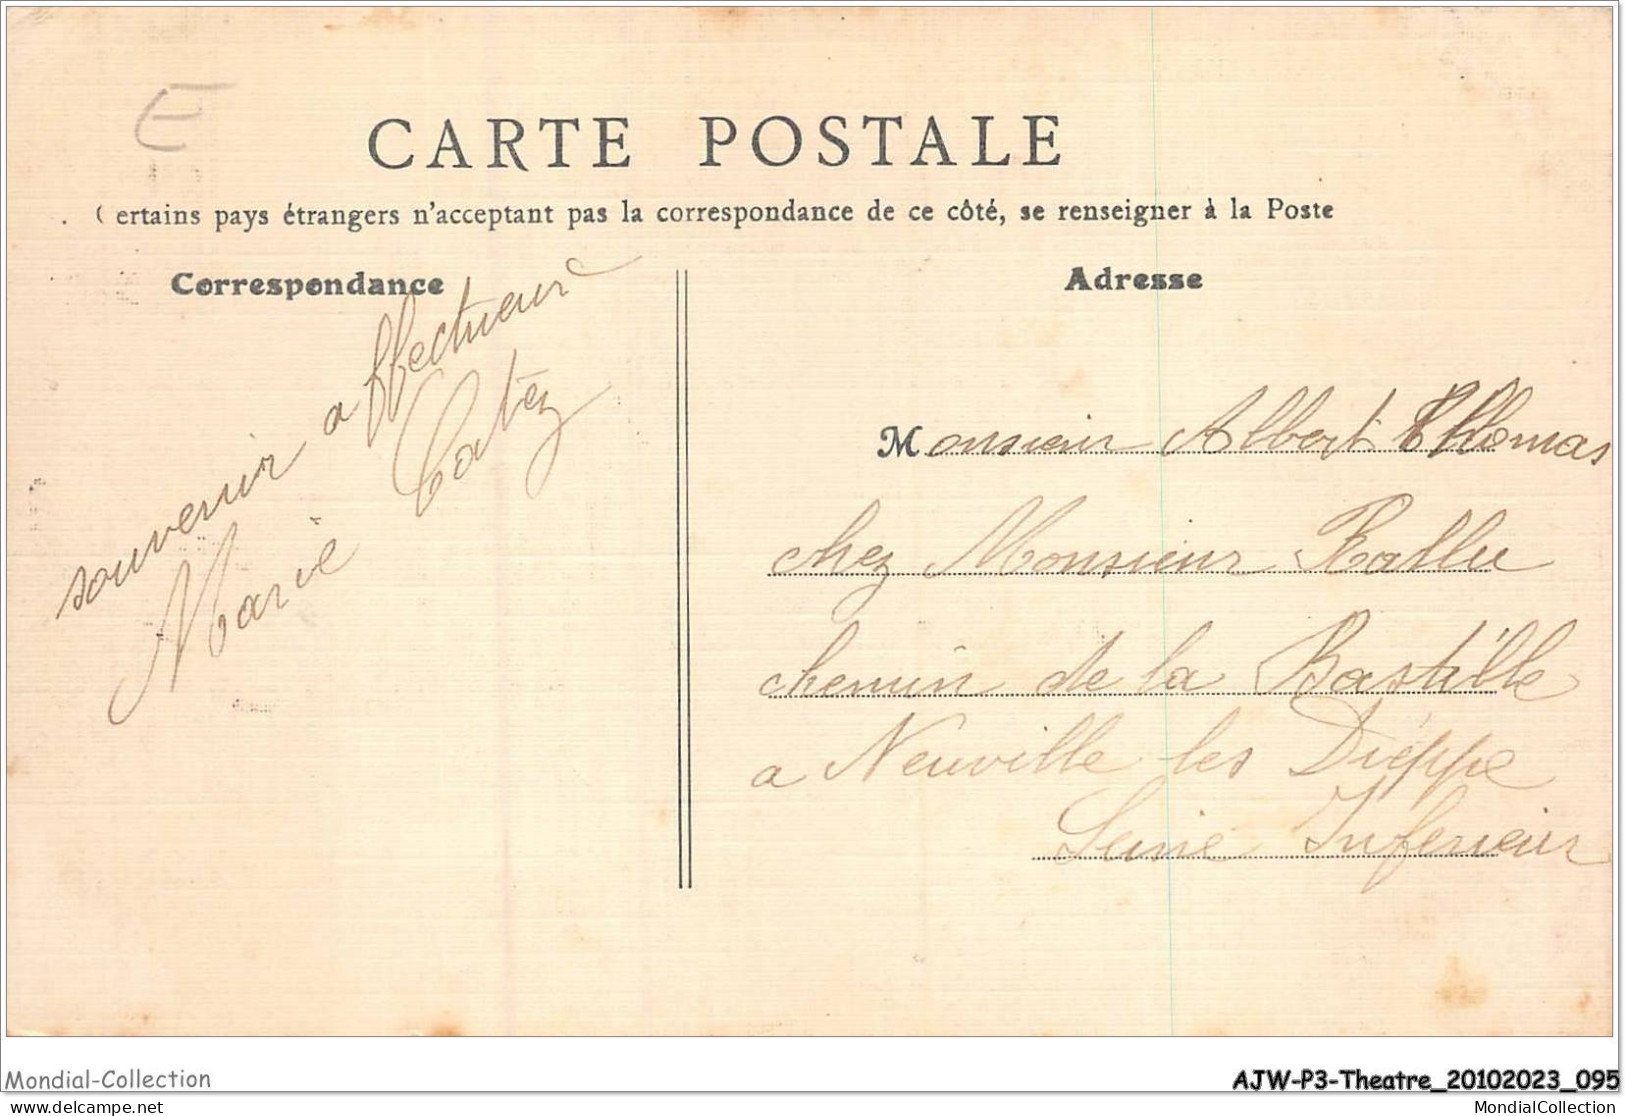 E
CARTE POSTALE
Certains pays étrangers n'acceptant pas la correspondance de ce côté, se renseigner à la Poste
Correspondance
souvenir affectueux
Marie Catez
Adresse
Monsieur Albert Thomas
chez Monsieur Rallu
chemin de la Bastille
a Neuville les Dieppe
Seine Inferieur
Mondial-Collection
AJW-P3-Theatre_20102023_095
delcampe.net
MondialCollection